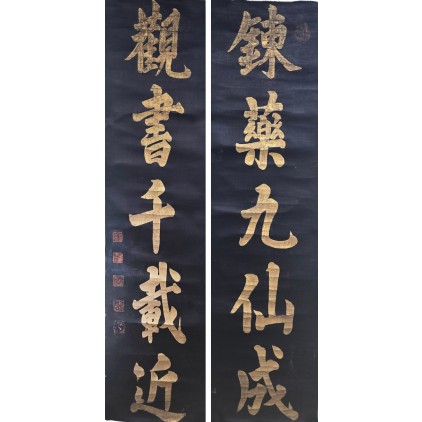 錬藥九仙成
觀書千載近